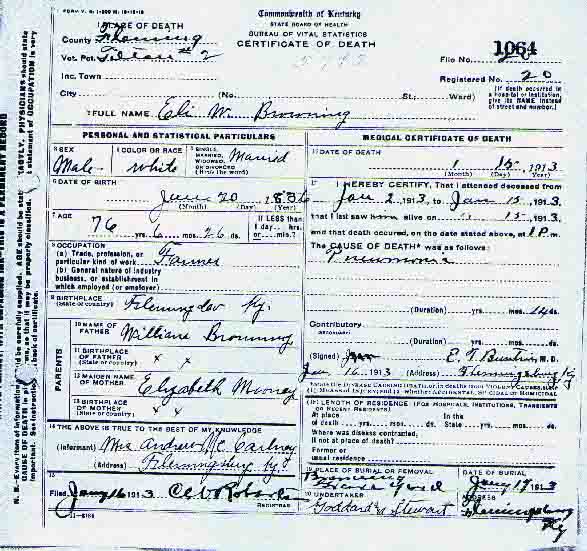 FORM V. S. 1-200 M. 10-19-10
Commonwealth of Kentucky
STATE BOARD OF HEALTH
BUREAU OF VITAL STATISTICS
CERTIFICATE OF DEATH
PLACE OF DEATH
County Fleming
Vot. Pct. Tilton #2
Inc. Town
City (No. St.; Ward)
File No. 1064
Registered No. 20
(If death occurred in a hospital or institution, give its NAME instead of street and number.)
2 FULL NAME Eli W. Browning
PERSONAL AND STATISTICAL PARTICULARS
3 SEX Male
4 COLOR OR RACE white
5 SINGLE, MARRIED, WIDOWED, OR DIVORCED (Write the word) Married
6 DATE OF BIRTH
June 20 1836
(Month) (Day) (Year)
7 AGE
76 yrs. 6 mos. 26 ds.
If LESS than 1 day-- hrs or---min.?
8 OCCUPATION
(a) Trade, profession, or particular kind of work Farmer
(b) General nature of industry business, or establishment in which employed (or employer)
9 BIRTHPLACE
(State or country) Fleming co Ky.
PARENTS
10 NAME OF FATHER William Browning
11 BIRTHPLACE OF FATHER (State or country) x x
12 MAIDEN NAME OF MOTHER Elizabeth Mooney
13 BIRTHPLACE OF MOTHER (State or country) x x
14 THE ABOVE IS TRUE TO THE BEST OF MY KNOWLEDGE
(Informant) Mrs Andrew Mc Cartney
(Address) Flemingsburg Ky.
15
Filed Jany 16 1913
REGISTRAR
11-6184
MEDICAL CERTIFICATE OF DEATH
16 DATE OF DEATH
1 15, 1913
(Month) (Day) (Year)
17 I HEREBY CERTIFY, That I attended deceased from
Jan 2 1913, to Jan 15, 1913,
that I last saw him alive on 1 15, 1913,
and that death occurred, on the date stated above, at 1 P.m.
The CAUSE OF DEATH* was as follows:
Pneumonia
(Duration) yrs. mos. 14 ds.
Contributory
SECONDARY
(Duration) yrs. mos. ds.
(Signed) M.D.
Jan 16, 1913 (Address) Flemingsburg Ky
18 LENGTH OF RESIDENCE (FOR HOSPITALS, INSTITUTIONS, TRANSIENTS OR RECENT RESIDENTS)
At place of death yrs. mos. ds. In the State yrs. mos. ds.
Where was disease contracted, if not at place of death?
Former or usual residence
19 PLACE OF BURIAL OR REMOVAL
Browning Grave Yard
DATE OF BURIAL
Jany 17 1913
20 UNDERTAKER
Goddard & Stewart
ADDRESS
Flemingsburg Ky